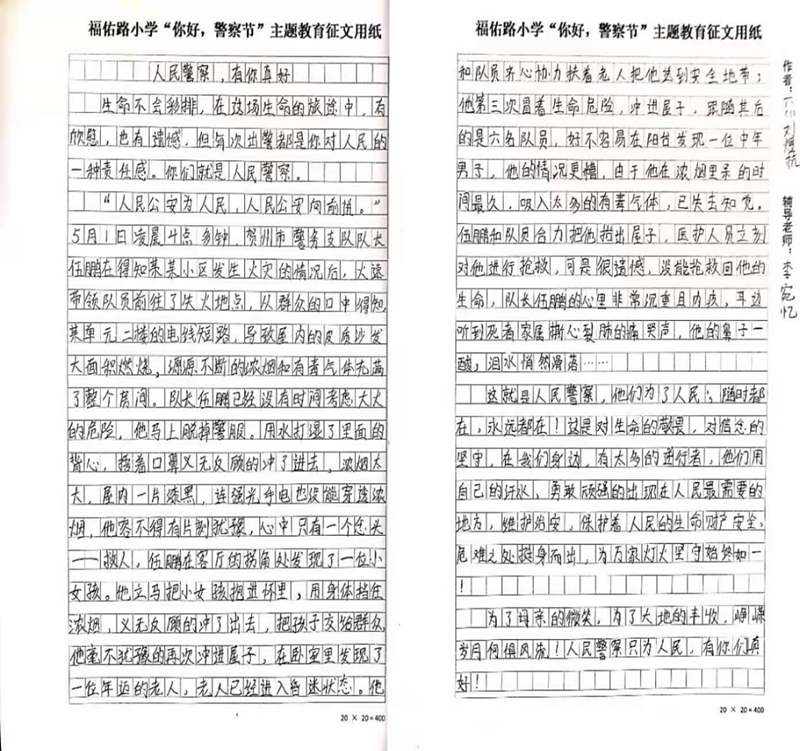 福佑路小学“你好，警察节”主题教育征文用纸
人民警察，有你真好
生命不会彩排，在这场生命的旅途中，有
欣慰，也有遗憾，但每次出警都是你对人民的
一种责任感。你们就是人民警察。
“人民公安为人民，人民公安向前进。”
5月1日凌晨4点多钟，贺州市警务支队队长
伍鹏在得知某某小区发生火灾的情况后，火速
带领队员前往了失火地点，从群众的口中得知，
某单元二楼的电线短路，导致屋内的皮质沙发
大面积燃烧，源源不断的浓烟和有毒气体充满
了整个房间。队长伍鹏已经没有时间考虑大火
的危险，他马上脱掉警服。用水打湿了里面的
背心，捂着口鼻义无反顾的冲了进去。浓烟太
大，屋内一片漆黑，连强光手电也没能穿透浓
烟，他容不得有片刻犹豫，心中只有一个念头
——救人，伍鹏在客厅的拐角处发现了一位小
女孩。他立马把小女孩抱进怀里，用身体挡住
浓烟，义无反顾的冲了出去，把孩子交给群众，
他毫不犹豫的再次冲进屋子，在卧室里发现了
一位年迈的老人，老人已经进入昏迷状态。他
20×20=400
福佑路小学“你好，警察节”主题教育征文用纸
和队员齐心协力扶着老人把他送到安全地带；
他第三次冒着生命危险，冲进屋子，跟随其后
的是六名队员，好不容易在阳台发现一位中年
男子，他的情况更糟，由于他在浓烟里呆的时
间最久，吸入太多的有毒气体，已失去知觉。
伍鹏和队员合力把他抬出屋子，医护人员立刻
对他进行抢救，可是很遗憾，没能抢救回他的
生命，队长伍鹏的心里非常沉重且内疚，耳边
听到死者家属撕心裂肺的痛哭声，他的鼻子一
酸，泪水悄然滑落……
这就是人民警察，他们为了人民，随时都
在，永远都在！这是对生命的敬畏，对信念的
坚守，在我们身边，有太多的逆行者，他们用
自己的汗水、勇敢顽强的出现在人民最需要的
地方，维护治安，保护着人民的生命财产安全，
危难之处挺身而出，为万家灯火坚守始终如一
！
为了母亲的微笑，为了大地的丰收，峥嵘
岁月何惧风流！人民警察只为人民，有你们真
好！
20×20=400
作者：刘
辅导老师：李宛忆